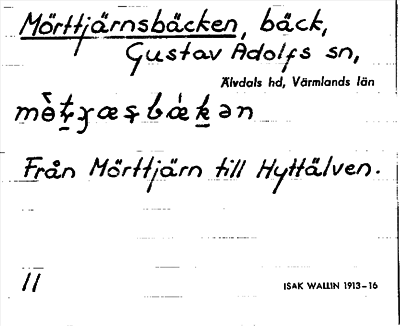 Mörttjärnsbäcken, bäck,
Gustav Adolfs sn,
Älvdals hd, Värmlands län
Från Mörttjärn till Hyttälven.
11
ISAK WALLIN 1913–16